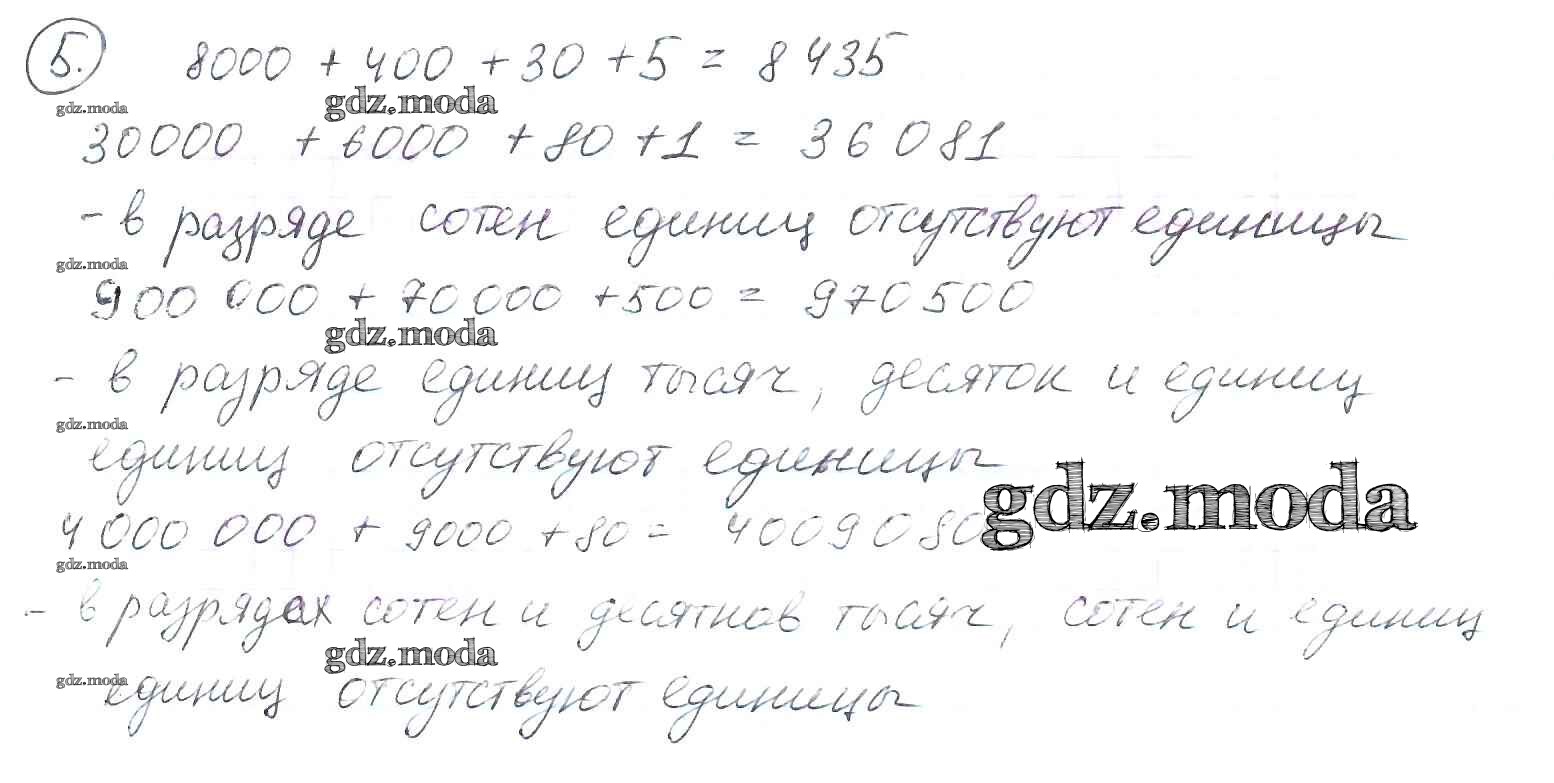 5. 8000 + 400 + 30 + 5 = 8435
gdz.moda gdz.moda
30000 + 6000 + 80 + 1 = 36081
- в разряде сотен единиц отсутствуют единицы
gdz.moda
900 000 + 70 000 + 500 = 970 500
gdz.moda
- в разряде единиц тысяч, десяток и единиц
gdz.moda
единиц отсутствуют единицы
gdz.moda
4 000 000 + 9000 + 80 = 4009080
gdz.moda
- в разрядах сотен и десятков тысяч, сотен и единиц
gdz.moda
gdz.moda
единиц отсутствуют единицы